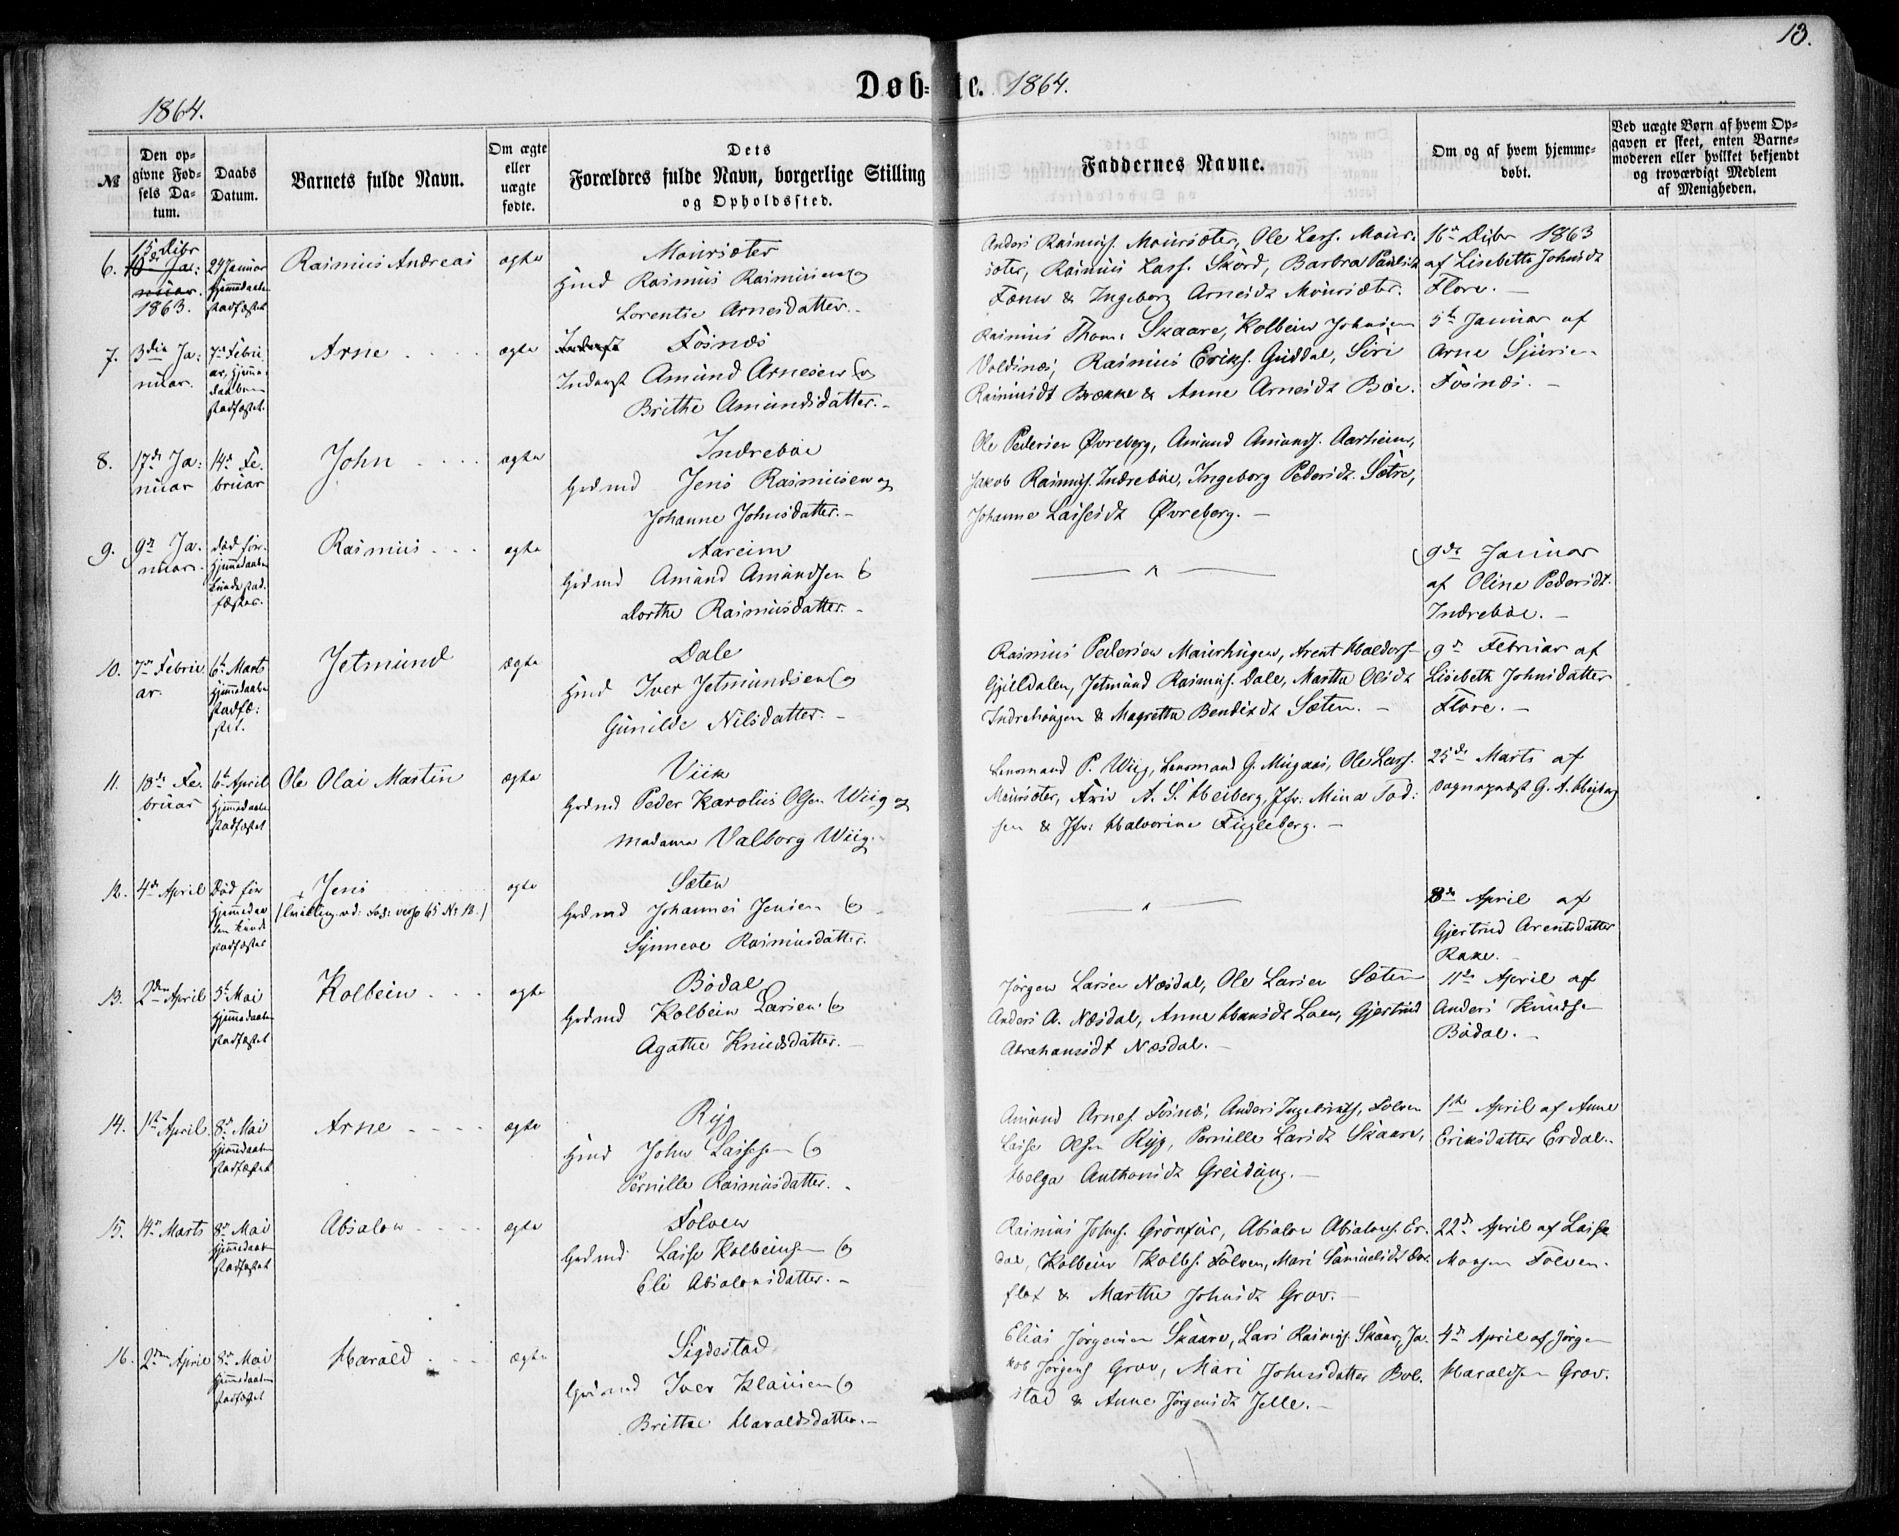 13.
Døb-te. 1864.
1864.
№
Den opgivne Fødsels Datum.
Daabs Datum.
Barnets fulde Navn.
Om ægte eller uægte fødte.
Dets Forældres fulde Navn, borgerlige Stilling og Opholdssted.
Faddernes Navne.
Om og af hvem hjemmedøbt.
Ved uægte Børn af hvem Opgaven er skeet, enten Barnemoderen eller hvilket bekjendt og troværdigt Medlem af Menigheden.
6.
15de Dcbr
1863.
24 Januar
hjemmedaaben
stadfæstet
Rasmus Andreas
ægte
Moursæter
Hmd Rasmus Rasmussen og
Lorentse Arnesdatter.
Anders Rasmuss. Moursæter, Ole Lass. Mour-
sæter, Rasmus Lass. Skord, Barbra Paulsdt
& Ingeborg Arnesdt Moursæter.
16de Dcbr 1863
af Lisebette Johnsdt
Flore. -
7.
3die Ja-
nuar.
7de Febru-
ar, hjemme-
daaben
stadfæstet.
Arne
ægte
Fosnæs
Inderst Amund Arnesen og
Brithe Amundsdatter. -
Rasmus Thom. Skaare, Kolbein Johnsen
Voldsnes, Rasmus Eriks. Guddal, Siri
Rasmusdt Brække & Anne Arnesdt Böe.
5te Januar af
Arne Sjursen
Fosnæs. -
8.
17de Ja-
nuar
14de Fe-
bruar
John
ægte
Indreböe
Grdmd Jens Rasmussen og
Johanne Johnsdatter. -
Ole Pedersen Øvreberg, Amund Amunds. Aarheim,
Jakob Rasmuss. Indreböe, Ingeborg Pedersdt. Sætre,
Johanne Lassesdt Øvreberg. -
9.
9de Ja-
nuar.
død før
hjemmedaaben
kunde stad-
fæstes.
Rasmus
ægte
Aareim
Grdmd Amund Amundsen og
Dorthe Rasmusdatter. -
9de Januar
af Oline Pedersdt.
Indreböe. -
10.
7de Febru-
ar.
6te Marts
hjemmedaaben
stadfæ-
stet.
Jetmund
ægte
Dale
Hmd Iver Jetmundsen og
Gunilde Nilsdatter. -
Rasmus Pedersen Maurhugen, Arent Haldors
Gjilldalen, Jetmund Rasmuss. Dale, Marthe Olsdt
Indrehaugen & Magrethe Bendixdt Sæten. -
9de Februar af
Lisebeth Johnsdatter
Flore. -
11.
18de Fe-
bruar
6te April
hjemmedaaben
stadfæstet
Ole Olai Martin
ægte
Viik
Grdmd Peder Karolius Olsen Wiig og
Madame Valborg Wiig.
Lensmand P. Wiig, Lensmand G. Mugaas, Ole Lass.
Moursæter, A. S. Heiberg, Jfr. Mina Tod-
sen & Jfr. Halvorine Fugleberg. -
25de Marts af
Sognepræst G. A. Heiberg
12.
4de April
Død før
hjemmedaa-
ben kunde
stadfæstes
Jens
(Tvilling. vd: död: verso 65 Nr 12.)
ægte
Sæten
Grdmd Johannes Jensen og
Synneve Rasmusdatter.
8de April af
Gjertrud Arentsdatter
Rake. -
13.
2den April
5te Mai
hjemmedaaben
stadfæstet
Kolbein
ægte
Bödal
Grdmd Kolbein Larsen og
Agathe Knudsdatter. -
Jörgen Larsen Næsdal, Ole Larsen Sæten
Anders A. Næsdal, Anne Hansdt Loen, Gjertrud
Abrahamsdt Næsdal. -
11te April af
Anders Knudsen
Bödal. -
14.
1ste April.
8de Mai
hjemmedaaben
stadfæstet
Arne
ægte
Ryg
Hmd John Lassesen og
Pernille Rasmusdatter. -
Amund Arnes. Fosnæs, Anders Ingebrigts. Folven
Lasse Olsen Ryg, Pernille Larsdt Skaare,
Helga Anthonsdt Greidung. -
1ste April af Anne
Eriksdatter Erdal. -
15.
14de Marts
8de Mai
hjemmedaaben
stadfæstet
Absalon
ægte
Folven
Grdmd. Lasse Kolbeinsen og
Eli Absalonsdatter. -
Rasmus Johns. Grönfur, Absalon Absalons. Er-
dal, Kolbein Kolbs. Folven, Mari Samuelsdt
flot & Marthe Johnsdt Grov. -
22de April af Lasse
Monsen Folven.
16.
2den April
8de Mai
hjemmedaaben
stadfæstet
Harald
ægte
Sigdestad
Grdmd Iver Klausen og
Brithe Haraldsdatter. -
Elias Jörgensen Skaare, Lars Rasmuss. Skaar, Ja-
kob Jörgens Grov, Mari Johnsdatter Bol-
stad & Anne Jörgensdt Jelle. -
4de April af Jörgen
Haraldsen Grov.